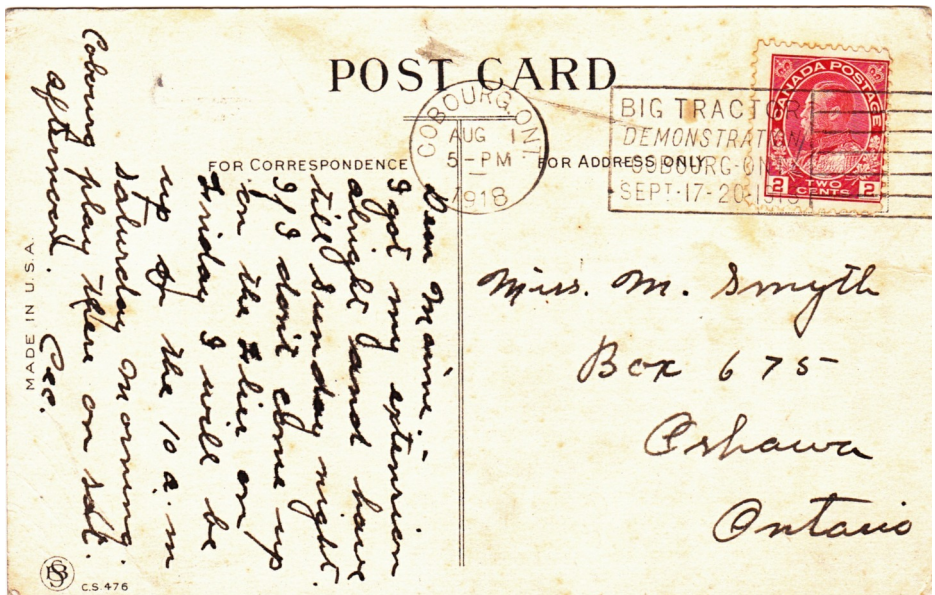 POST CARD
COBOURG, ONT
AUG 1
5-PM
1918
BIG TRACTOR
DEMONSTRATION
COBOURG-ONT
SEPT-17-20-1918
CANADA POSTAGE
2 TWO CENTS 2
FOR CORRESPONDENCE
FOR ADDRESS ONLY
Dear Mamie.
I got my extension
alright and have
till Sunday night.
If I don't come up
on the Flier on
Friday I will be
up on the 10 a.m
Saturday morning.
Cobourg play there on Sat.
afternoon. Cec.
Miss. M. Smyth
Box 675
Oshawa
Ontario
MADE IN U.S.A.
C.S. 476